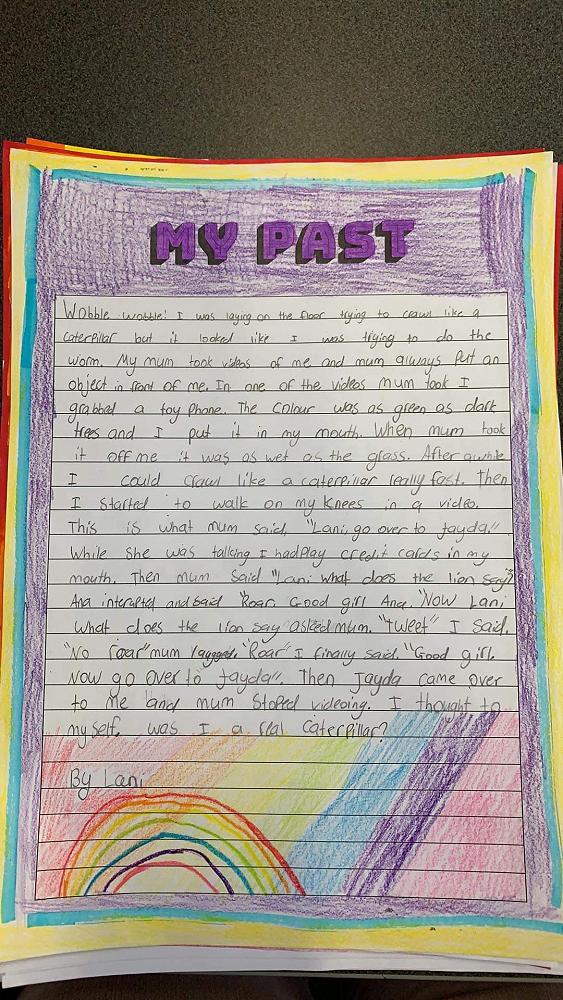 MY PAST
Wobble wobble! I was laying on the floor trying to crawl like a
caterpillar but it looked like I was trying to do the
worm. My mum took videos of me and mum always put an
object in front of me. In one of the videos mum took I
grabbed a toy phone. The colour was as green as dark
trees and I put it in my mouth. When mum took
it off me it was as wet as the grass. After awhile
I could crawl like a caterpillar really fast. Then
I started to walk on my knees in a video.
This is what mum said, "Lani, go over to Jayda."
While she was talking I had play credit cards in my
mouth. Then mum said "Lani what does the lion say?"
Ana interupted and said "Roar. Good girl Ana. "Now Lani
what does the lion say asked mum. "Tweet" I said.
"No roar" mum laugged. "Roar" I finally said. "Good girl.
Now go over to Jayda". Then Jayda came over
to me and mum stoped videoing. I thought to
myself, was I a real caterpillar?
By Lani